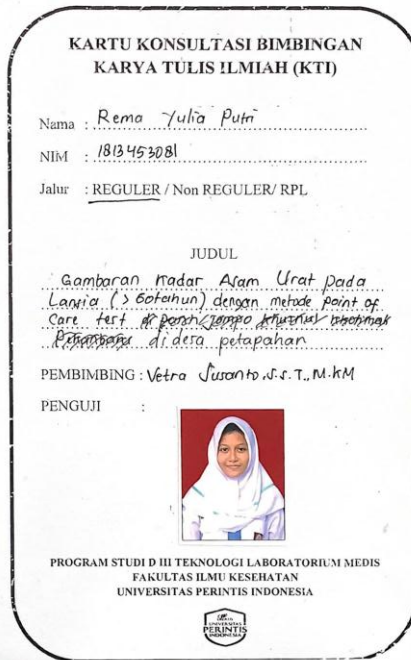 KARTU KONSULTASI BIMBINGAN
KARYA TULIS ILMIAH (KTI)
Nama : Rema Yulia Putri
NIM : 1813453081
Jalur : REGULER / Non REGULER/ RPL
JUDUL
Gambaran Kadar Asam Urat pada
Lansia (> 60tahun) dengan metode point of
Care test di panti jompo
di desa petapahan
PEMBIMBING : Vetra Susanto.S.S.T., M.KM
PENGUJI :
PROGRAM STUDI D III TEKNOLOGI LABORATORIUM MEDIS
FAKULTAS ILMU KESEHATAN
UNIVERSITAS PERINTIS INDONESIA
UNIVERSITAS
PERINTIS
INDONESIA